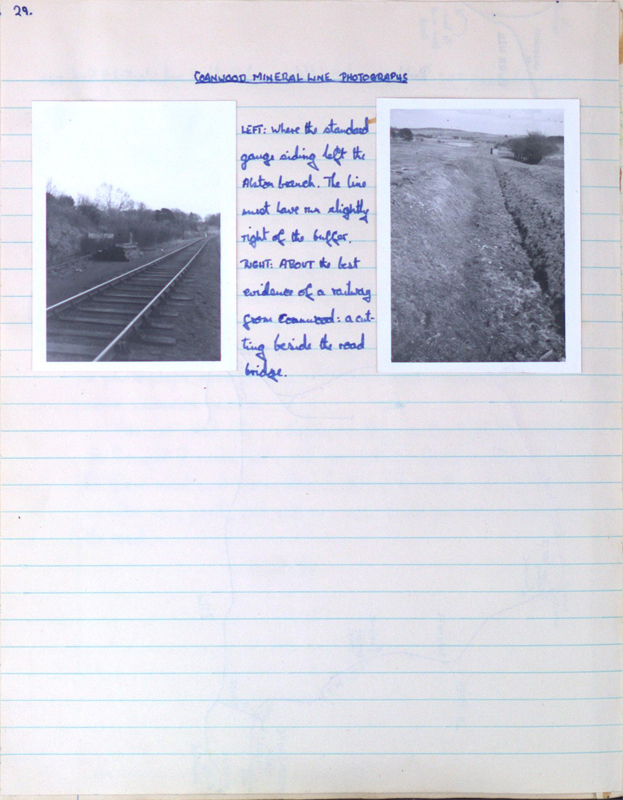 29.
COANWOOD MINERAL LINE PHOTOGRAPHS
LEFT: Where the standard
gauge siding left the
Alston branch. The line
must have run slightly
right of the buffer.
RIGHT: ABOUT the best
evidence of a railway
from Coanwood: a cut-
ting beside the road
bridge.